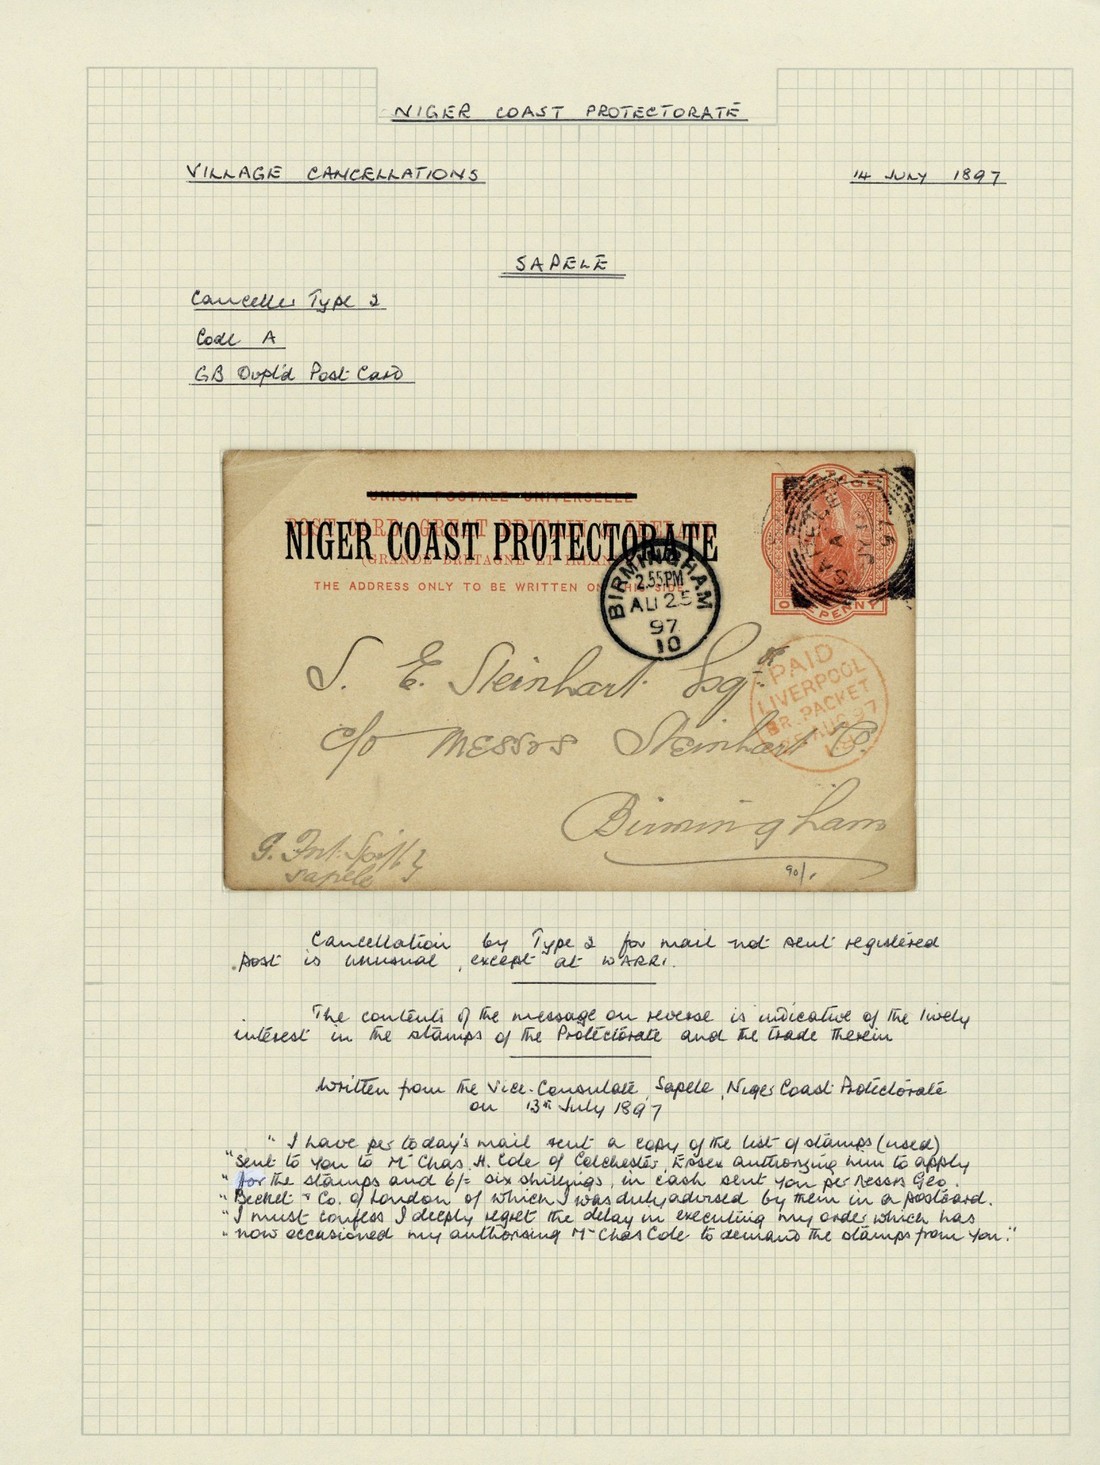 NIGER COAST PROTECTORATE
VILLAGE CANCELLATIONS
14 JULY 1897
SAPELE
Canceller Type 2
Code A
GB Ovpt'd Post Card
UNION POSTALE UNIVERSELLE
POST CARD GREAT BRITAIN & IRELAND
NIGER COAST PROTECTORATE
(GRANDE BRETAGNE ET IRLANDE)
THE ADDRESS ONLY TO BE WRITTEN ON THIS SIDE
BIRMINGHAM
2.55 PM
AU 25
97
10
SAPELE
A
JY
97
ONE PENNY
PAID
LIVERPOOL
BR. PACKET
25 AUG 97
S. E. Steinhart Esqr
c/o Messrs Steinhart Co.
Birmingham
G.
Sapele
90/-
Cancellation by Type 2 for mail not sent registered
post is unusual, except at WARRI.
The contents of the message on reverse is indicative of the lively
interest in the stamps of the Protectorate and the trade therein
Written from the Vice-Consulate, Sapele, Niger Coast Protectorate
on 13th July 1897
" I have per today's mail sent a copy of the list of stamps (used)
" sent to you to Mr Chas. H. Cole of Colchester, Essex authorizing him to apply
" for the stamps and 6/= six shillings, in cash sent you per Messrs Geo.
" Becket & Co. of London of which I was duly advised by them in a postcard.
" I must confess I deeply regret the delay in executing my order which has
" now occasioned my authorising Mr Chas Cole to demand the stamps from you."